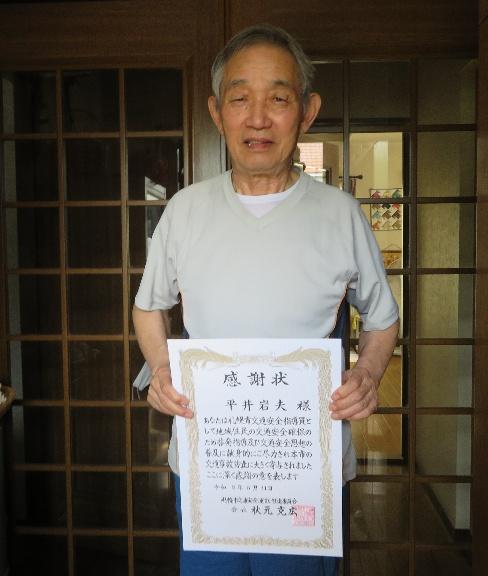 感謝状
平井岩夫 様
あなたは札幌市交通安全指導員と
して地域住民の交通安全確保の
ため街頭指導及び交通安全思想の
普及に献身的にご尽力され本市の
交通事故防止に大きく寄与されました
ここに深く感謝の意を表します
令和 年 月 日
札幌市交通安全運動推進委員会
会長 秋元克広